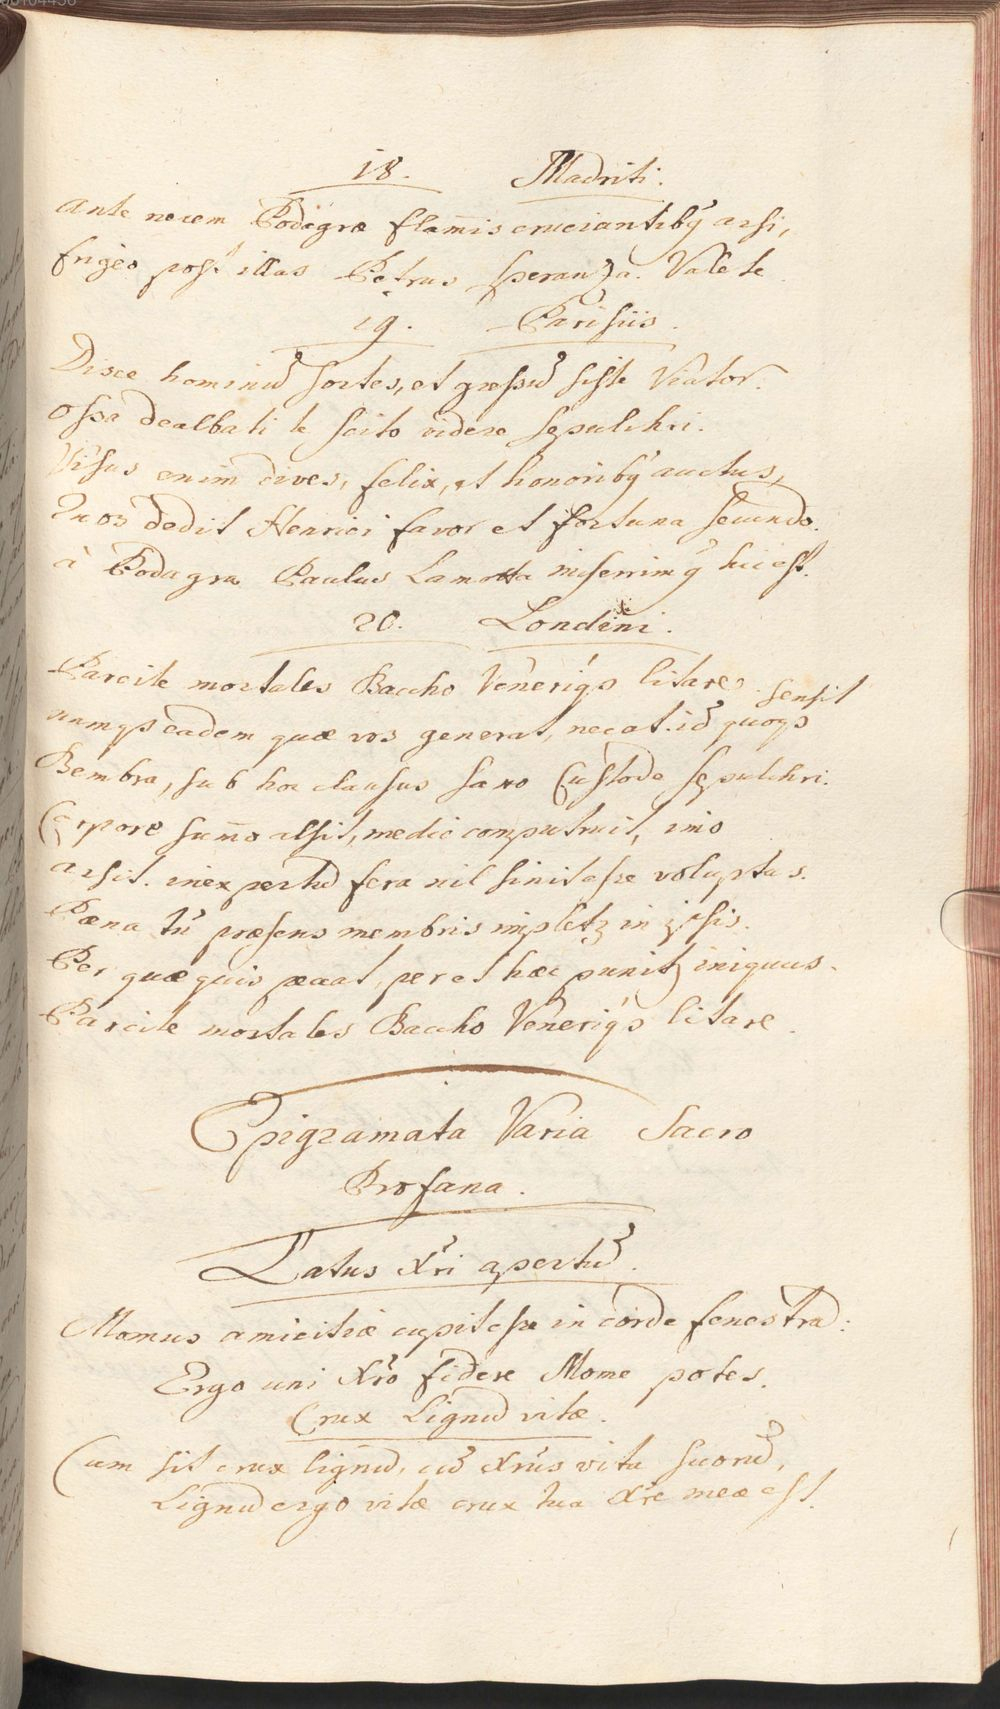 18. Madriti.
Ante necem Podagræ flam̄is cruciantibꝯ arsi,
frigeo post illas Petrus Speranza. Valete
19. Parisiis.
Disce hominū sortes, et gressū siste Viator.
Ossa dealbati te scito videre sepulchri.
Visus enim dives, felix, et honoribꝯ auctus,
Quos dedit Henrici favor et fortuna secundo.
à Podagra Paulus Lamotta miserrimꝯ hic est.
20. Londini.
Parcite mortales Baccho Venerique litare. sensit
namque eadem quæ vos generat, necat. id̄ quoque
Bembra, sub hoc clausus saxo Custode sepulchri.
Corpore sum̄o alsit, medio computruit, imo
arsit. inexpertū fera nil sinit esse voluptas.
Pæna tū præsens membris impletꝫ in ipsis.
Per quæ quis peccat, per et hæc punitꝫ iniquus.
Parcite mortales Baccho Venerique litare.
Epigramata Varia Sacro
Profana.
Latus Xr̄i apertū.
Momus amicitiæ cupit esse in corde fenestrā:
Ergo uni Xr̄o fidere Mome potes.
Crux Lignū vitæ.
Cum sit crux lignū, cū Xr̄us vita suorū,
Lignū ergo vitæ crux tua Xr̄e meæ est.